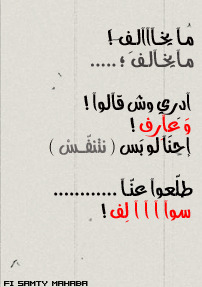 مـا يخـاااالف !
مـايخـالف ؛ .....
ادري وش قالوا !
و عارف !
إحنـا لو بس ( نتنفـّس )
طلّعوا عنّـا ............
سوا ا ا ا لِف !
FI SAMTY MAHABA